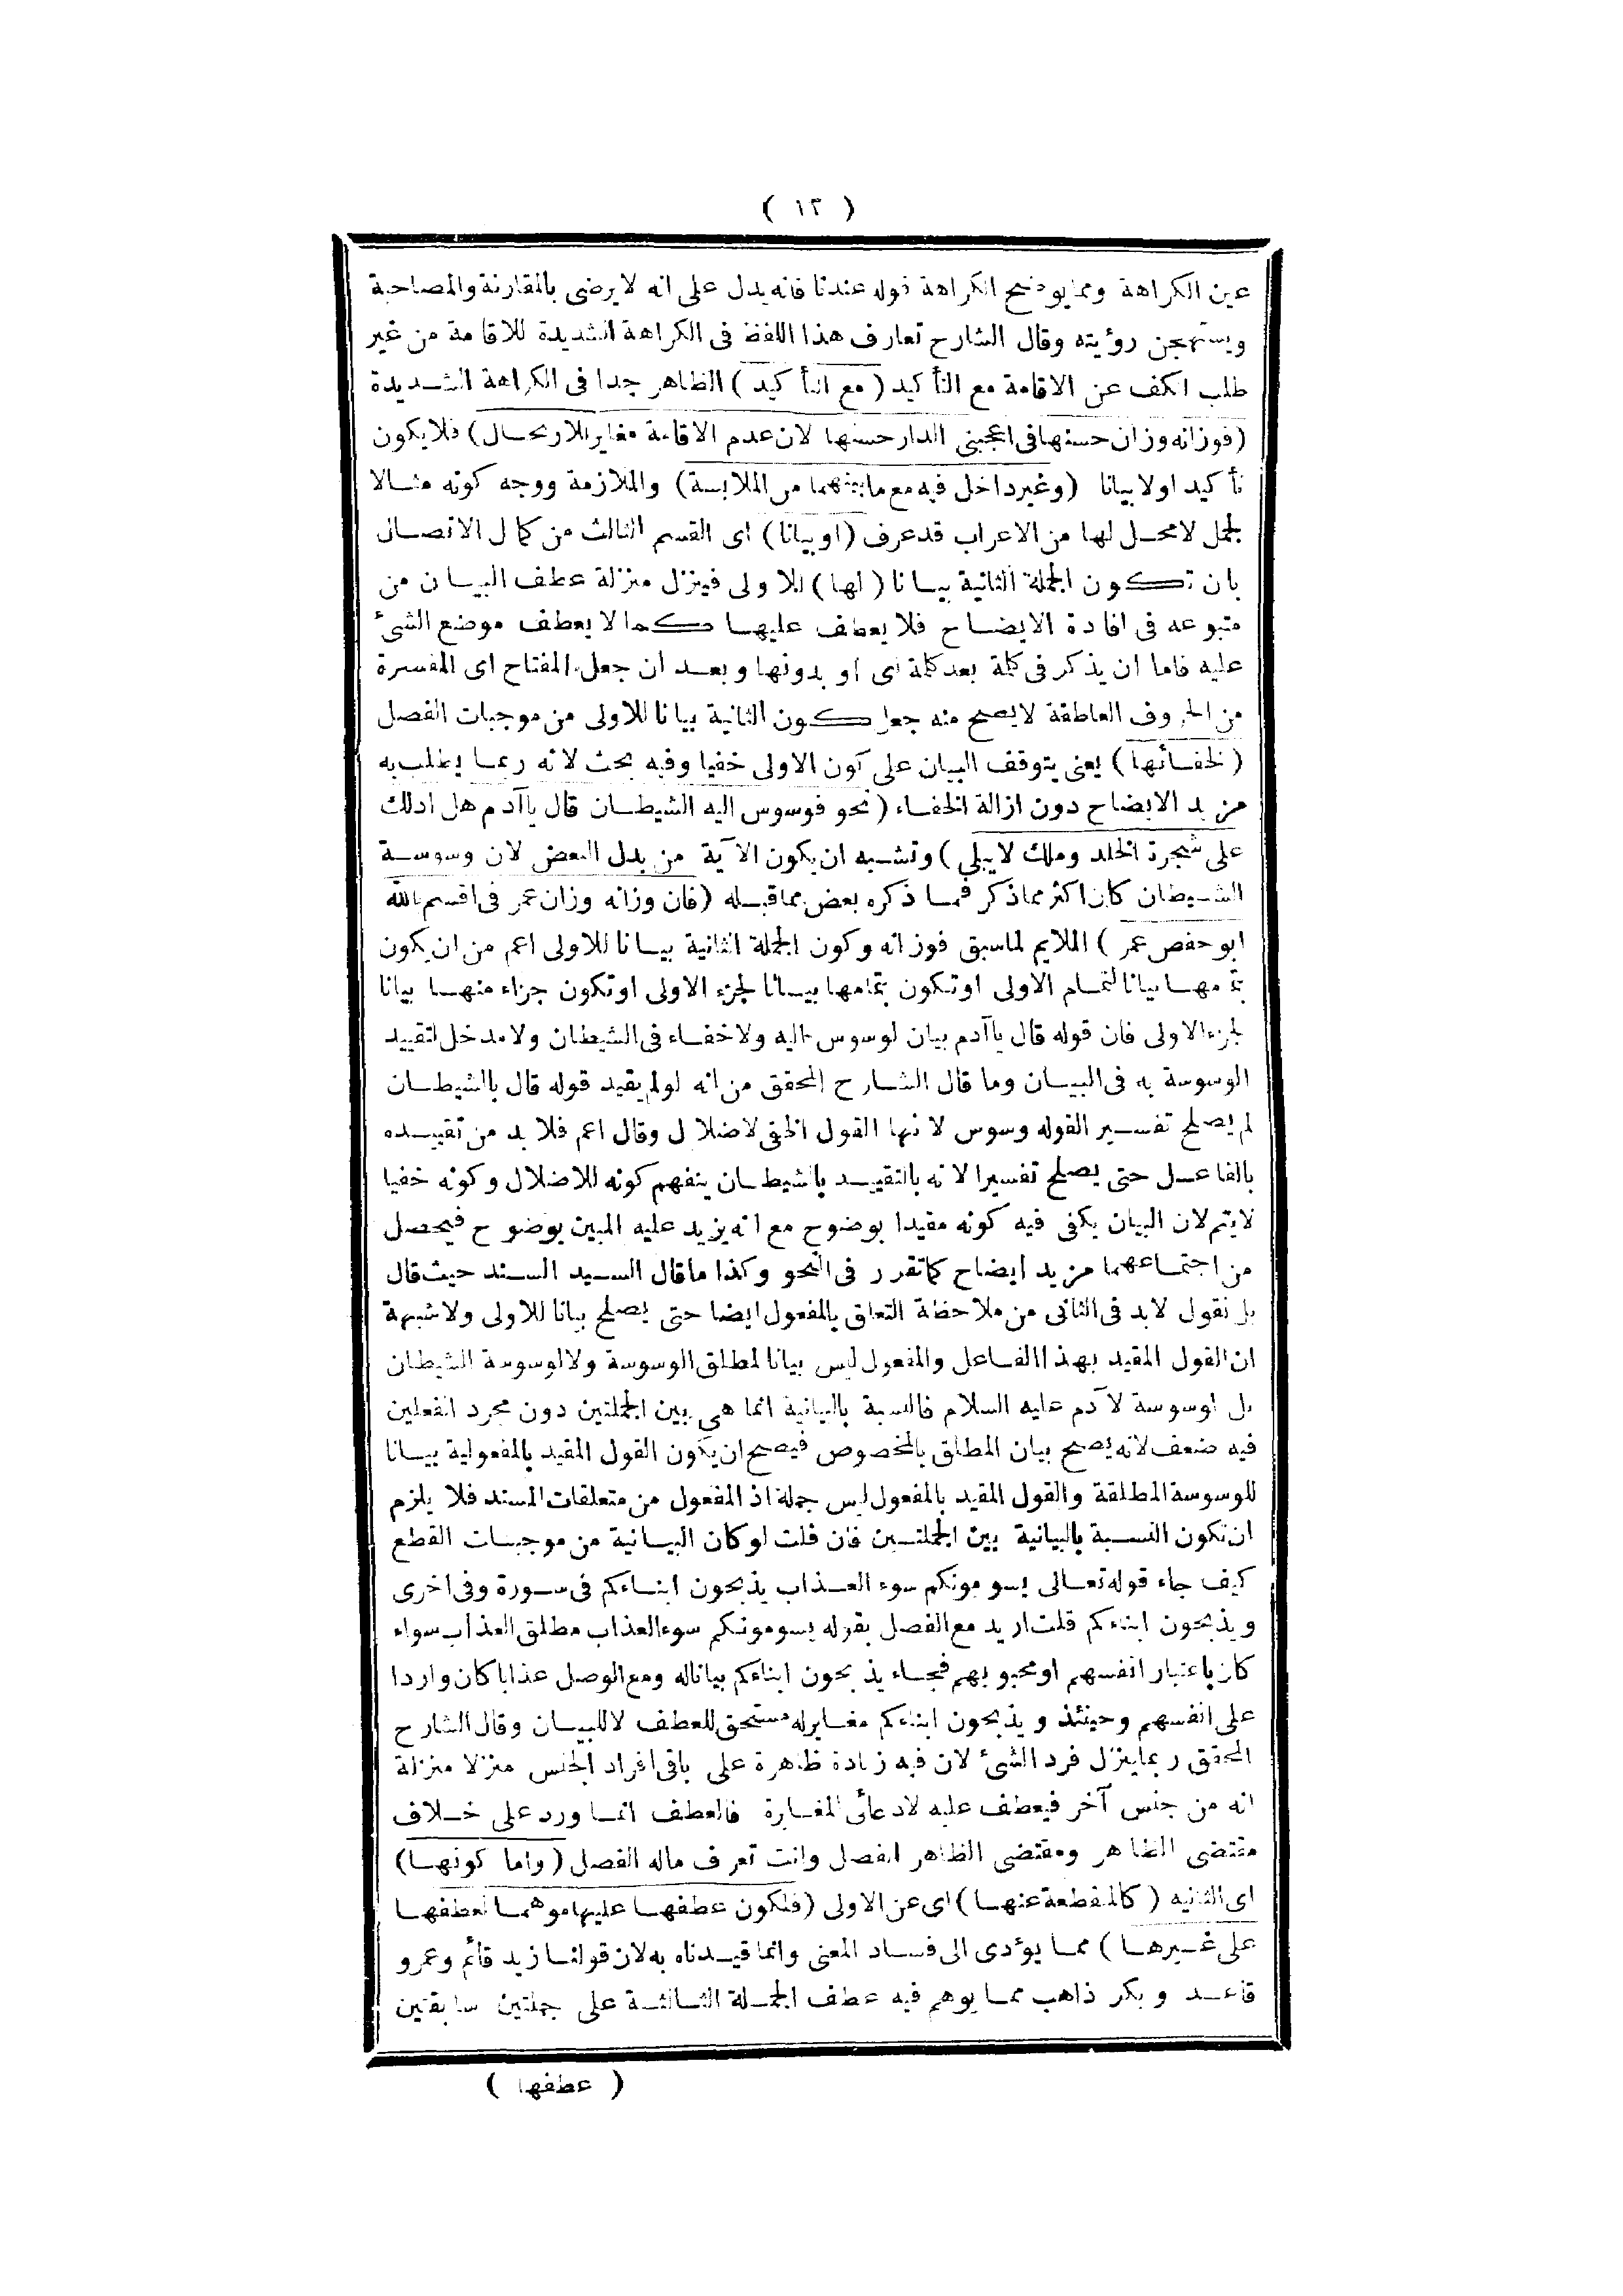 ( ١٢ )
عين الكراهة ومما يوضح الكراهة قوله عندنا فانه يدل على انه لا يرضى بالمقارنة والمصاحبة
ويستهجن رؤيته وقال الشارح تعارف هذا اللفظ فى الكراهة الشديدة للاقامة من غير
طلب الكف عن الاقامة مع التأكيد ( مع التأكيد ) الظاهر جدا فى الكراهة الشديدة
(فوزانه وزان حسنها فى اعجبنى الدار حسنها لان عدم الاقامة مغاير للارتحال) فلا يكون
تأكيد اولا بيانا (وغير داخل فيه مع ما بينهما من الملابسة) والملازمة ووجه كونه مثالا
لجمل لا محل لها من الاعراب قد عرف (او بيانا) اى القسم الثالث من كمال الاتصال
بان تكون الجملة الثانية بيانا (لها) للاولى فينزل منزلة عطف البيان من
متبوعه فى افادة الايضاح فلا يعطف عليها كما لا يعطف موضع الشىء
عليه فاما ان يذكر فى كلمة بعد كلمة اى او بدونها وبعد ان جعل المفتاح اى المفسرة
من الحروف العاطفة لا يصح منه جعل كون الثانية بيانا للاولى من موجبات الفصل
( لخفائها ) يعنى يتوقف البيان على كون الاولى خفيا وفيه بحث لانه ربما يطلب به
مزيد الايضاح دون ازالة الخفاء ( نحو فوسوس اليه الشيطان قال يا آدم هل ادلك
على شجرة الخلد وملك لا يبلى ) وتشبه ان يكون الآية من بدل البعض لان وسوسة
الشيطان كان اكثر مما ذكر فما ذكره بعض مما قبله (فان وزانه وزان عمر فى اقسم بالله
ابو حفص عمر ) الملايم لما سبق فوزانه وكون الجملة الثانية بيانا للاولى اعم من ان يكون
بتمامها بيانا لتمام الاولى او تكون بتمامها بيانا لجزء الاولى او تكون جزاء منها بيانا
لجزء الاولى فان قوله قال يا آدم بيان لوسوس اليه ولا خفاء فى الشيطان ولا مدخل لتقييد
الوسوسة به فى البيان وما قال الشارح المحقق من انه لو لم يقيد قوله قال بالشيطان
لم يصلح تفسير القوله وسوس لانها القول الخفى لاضلال وقال اعم فلا بد من تقييده
بالفاعل حتى يصلح تفسيرا لانه بالتقييد بالشيطان ينفهم كونه للاضلال وكونه خفيا
لا يتم لان البيان يكفى فيه كونه مقيدا بوضوح مع انه يزيد عليه المبين بوضوح فيحصل
من اجتماعهما مزيد ايضاح كما تقرر فى النحو وكذا ما قال السيد السند حيث قال
بل نقول لا بد فى الثانى من ملاحظة التعلق بالمفعول ايضا حتى يصلح بيانا للاولى ولا شبهة
ان القول المقيد بهذا الفاعل والمفعول ليس بيانا لمطلق الوسوسة ولا لوسوسة الشيطان
بل لوسوسة لآدم عليه السلام فالنسبة بالبيانية انما هى بين الجملتين دون مجرد الفعلين
فيه ضعف لانه يصح بيان المطلق بالمخصوص فيصح ان يكون القول المقيد بالمفعولية بيانا
للوسوسة المطلقة والقول المقيد بالمفعول ليس جملة اذ المفعول من متعلقات المسند فلا يلزم
ان تكون النسبة بالبيانية بين الجملتين فان قلت لو كان البيانية من موجبات القطع
كيف جاء قوله تعالى يسومونكم سوء العذاب يذبحون ابناءكم فى سورة وفى اخرى
ويذبحون ابناءكم قلت اريد مع الفصل بقوله يسومونكم سوء العذاب مطلق العذاب سواء
كان باعتبار انفسهم او محبوبهم فجاء يذبحون ابناءكم بيانا له ومع الوصل عذابا كان واردا
على انفسهم وحينئذ ويذبحون ابناءكم مغاير له مستحق للعطف لا للبيان وقال الشارح
المحقق ربما ينزل فرد الشئ لان فيه زيادة ظاهرة على باقى افراد الجنس منزلا منزلة
انه من جنس آخر فيعطف عليه لادعائى المغايرة فالعطف انما ورد على خلاف
مقتضى الظاهر ومقتضى الظاهر الفصل وانت تعرف ماله الفصل ( واما كونها)
اى الثانيه ( كالمنقطعة عنها ) اى عن الاولى (فلكون عطفها عليها موهما لعطفها
على غيرها ) مما يؤدى الى فساد المعنى وانما قيدناه به لان قولنا زيد قائم وعمرو
قاعد وبكر ذاهب مما يوهم فيه عطف الجملة الثالثة على جملتين سابقتين
( عطفها )